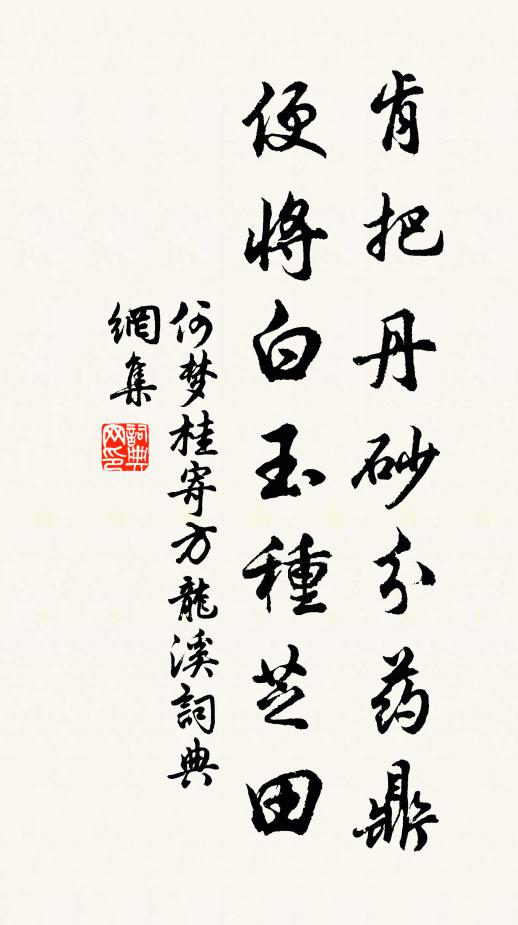 肯把丹砂分药鼎
便将白玉種芝田
何梦桂寄方龍溪詞典
網集
詞典网印